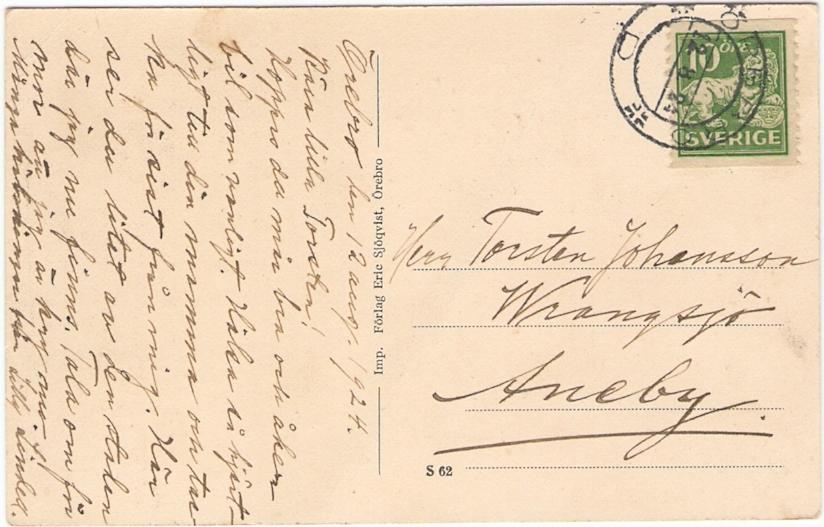 Örebro den 12 aug. 1924.
Kära lilla Torsten!
Hoppas du mår bra och åker
bil som vanligt. Hälsa så hjärt-
ligt till din mamma och tac-
ka så sist från mig. Här
ser du litet av den staden
där jag nu finns. Tala om för
mor att jag är
Många hälsningar från Lilly
Imp. Förlag Eric Sjöqvist, Örebro
S 62
10 ÖRE
SVERIGE
Herr Torsten Johansson
Wrangsjö
Aneby.